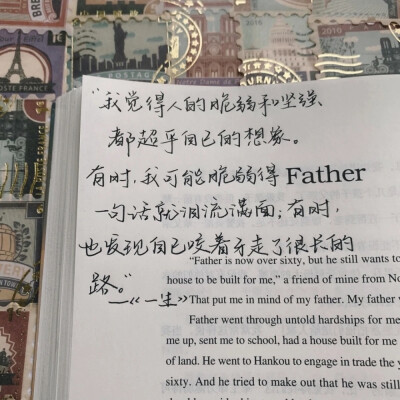 “我觉得人的脆弱和坚强、
都超乎自己的想象。
有时，我可能脆弱得
Father
一句话就泪流满面；有时，
也发现自己咬着牙走了很长的
路。”
—《一生》
"Father is now over sixty, but he still wants to
house to be built for me," a friend of mine from No
That put me in mind of my father. My father
Father went through untold hardships for me
me up, sent me to school, had a house built for me
of land. He went to Hankou to engage in trade the y
sixty. And he tried to make out that he was still
POSTAGE
TE FRANCE
2019